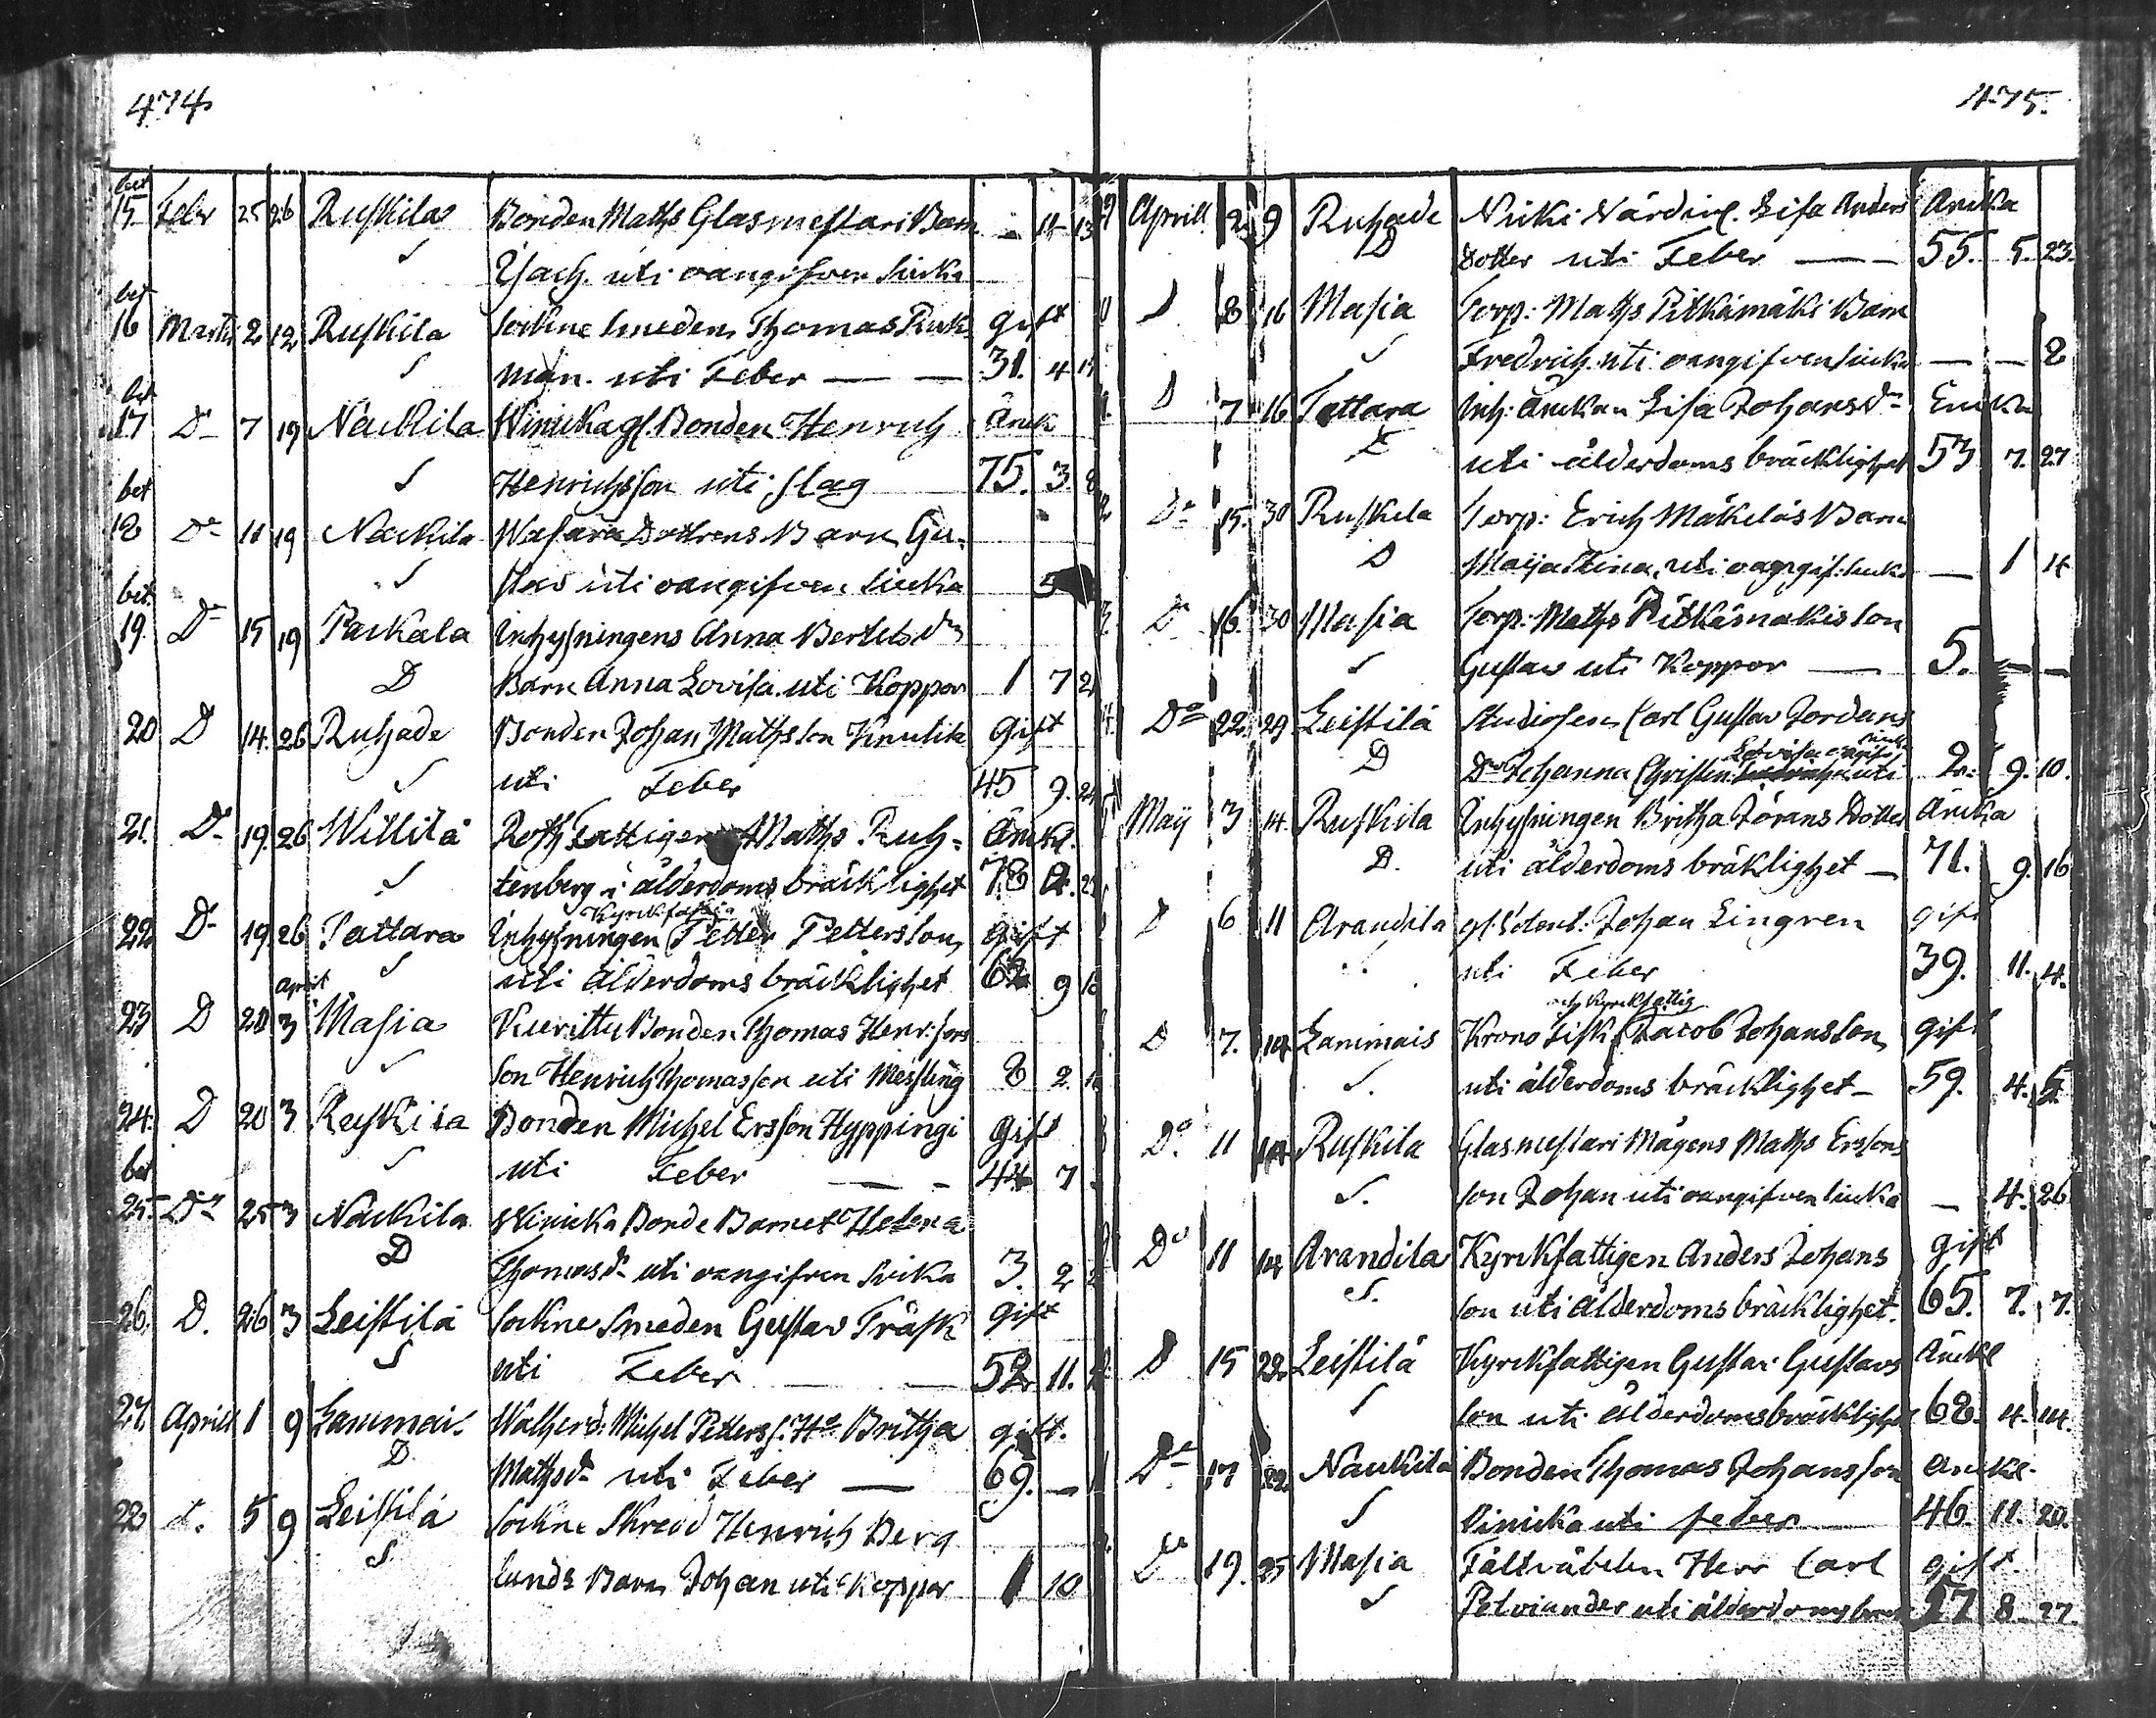 474
bet
15 Febr 25 26 Ruskila Bonden Matths Glasmestari Barn - 11 13
S Isach. uti oangifven siuka
bet
16 Martii 2 12 Ruskila Sockne Smeden Thomas Ruk gift
S man. uti Feber — — 31. 4
bet
17 D 7 19 Näukila Winickagl. Bonden Henrich Änck
S Henrichsson uti slag 75. 3. 8
bet
18 Do 11 19 Näckila Wasara Dottrens Barn Gu-
S stav uti oangifven siucka 5
bet.
19. Do 15 19 Paikala Inhysningens Anna Bertilsdr
D Barn Anna Lovisa uti Koppor 1 7 21
20 D 14. 26 Ruhade Bonden Johan Mathsson Knulik gift
S uti Feber 45 9. 21
21. D 19. 26 Willilä Roth Fattigen Maths Ruh- Änkl.
S tenberg i ålderdoms bräcklighet 78
22 D 19 26 Tattara Inhysningen Kyrckfattig Petter Pettersson gift
S uti ålderdoms bräcklighet 62 9
april
23 D 20 3 Masia Kurittu Bonden Thomas Henr:sons
S son Henrich Thomasson uti Messling 8 2.
24. D 20 3 Ruskila Bonden Michel Ersson Hyppingi gift
S uti Feber — - 44 7
bet
25 Do 25 3 Näckila Winicka Bonde Barnet Helena
D Thomasdr uti oangifven sivka 3. 2
26. D. 26 3 Leistilä Sockne Smeden Gustav Träsk gift
S uti Feber — — 52 11.
27. Aprill 1 9 Lammais Walherd: Michel Petters s. Ho Britha gift.
D Mathsdr uti Feber — 69. —
28 D. 5 9 Leistilä Sockne Skredd Henrich Berg
S. lunds Barn Johan uti Koppor 1 10
475.
Aprill 2 9 Ruhade Nicki Värdinl. Lisa Anders Ancka
D dotter uti Feber — 55. 5. 23.
D 8 16 Masia Torp: Maths Pitkämäki Barn
S Fredrich uti oangifven siucka — — 8
D 7. 16 Tattara Inh: änckan Lisa Johansdr Encka
D uti ålderdoms bräcklighet 53 7. 27
Do 15. 30 Ruskila Torp: Erich Mäkeläs Barn
D Maija Stina, uti oangif: siuka — 1 14
D 16. 30 Masia Torp: Maths Pitkämäkis son
S Gustav uti Koppor — 5. — —
Do 22. 29 Leistilä Studiosen Carl Gustav Jordans
D Dr Johanna Christin Lovisa oangif: siuka uti 2. 9. 10.
Maij 3 14. Ruskila Inhysningen Britha Jörans Dotter Ancka
D. uti ålderdoms bräklighet — 71. 9. 16
D 6 11 Arandila gl: Johan Lingren gift
S. uti Feber 39. 11. 4.
D 7. 14 Lammais Krono Fisk. och Kyrckfattig Jacob Johansson gift
S. uti ålderdoms bräcklighet - 59. 4. 5.
Do. 11 14 Ruskila Glasmestari Mågens Maths Erssons
S. son Johan uti oangifven siuka — 4. 26
Do 11 14 Arandila Kyrckfattigen Anders Johans gift
S. son uti ålderdoms bräcklighet. 65. 7. 7.
D 15 22 Leistilä Kyrckfattigen Gustav Gustavs Änckl
S son uti ålderdoms bräcklighet 68. 4. 14.
Do 17 22 Näukilä Bonden Thomas Johansson Änckl.
S Vinicka uti feber — 46. 11. 20.
Do 19. 25 Masia Fältväbelen Herr Carl gift.
S Polviander uti ålderdoms bräck 57 8. 27.